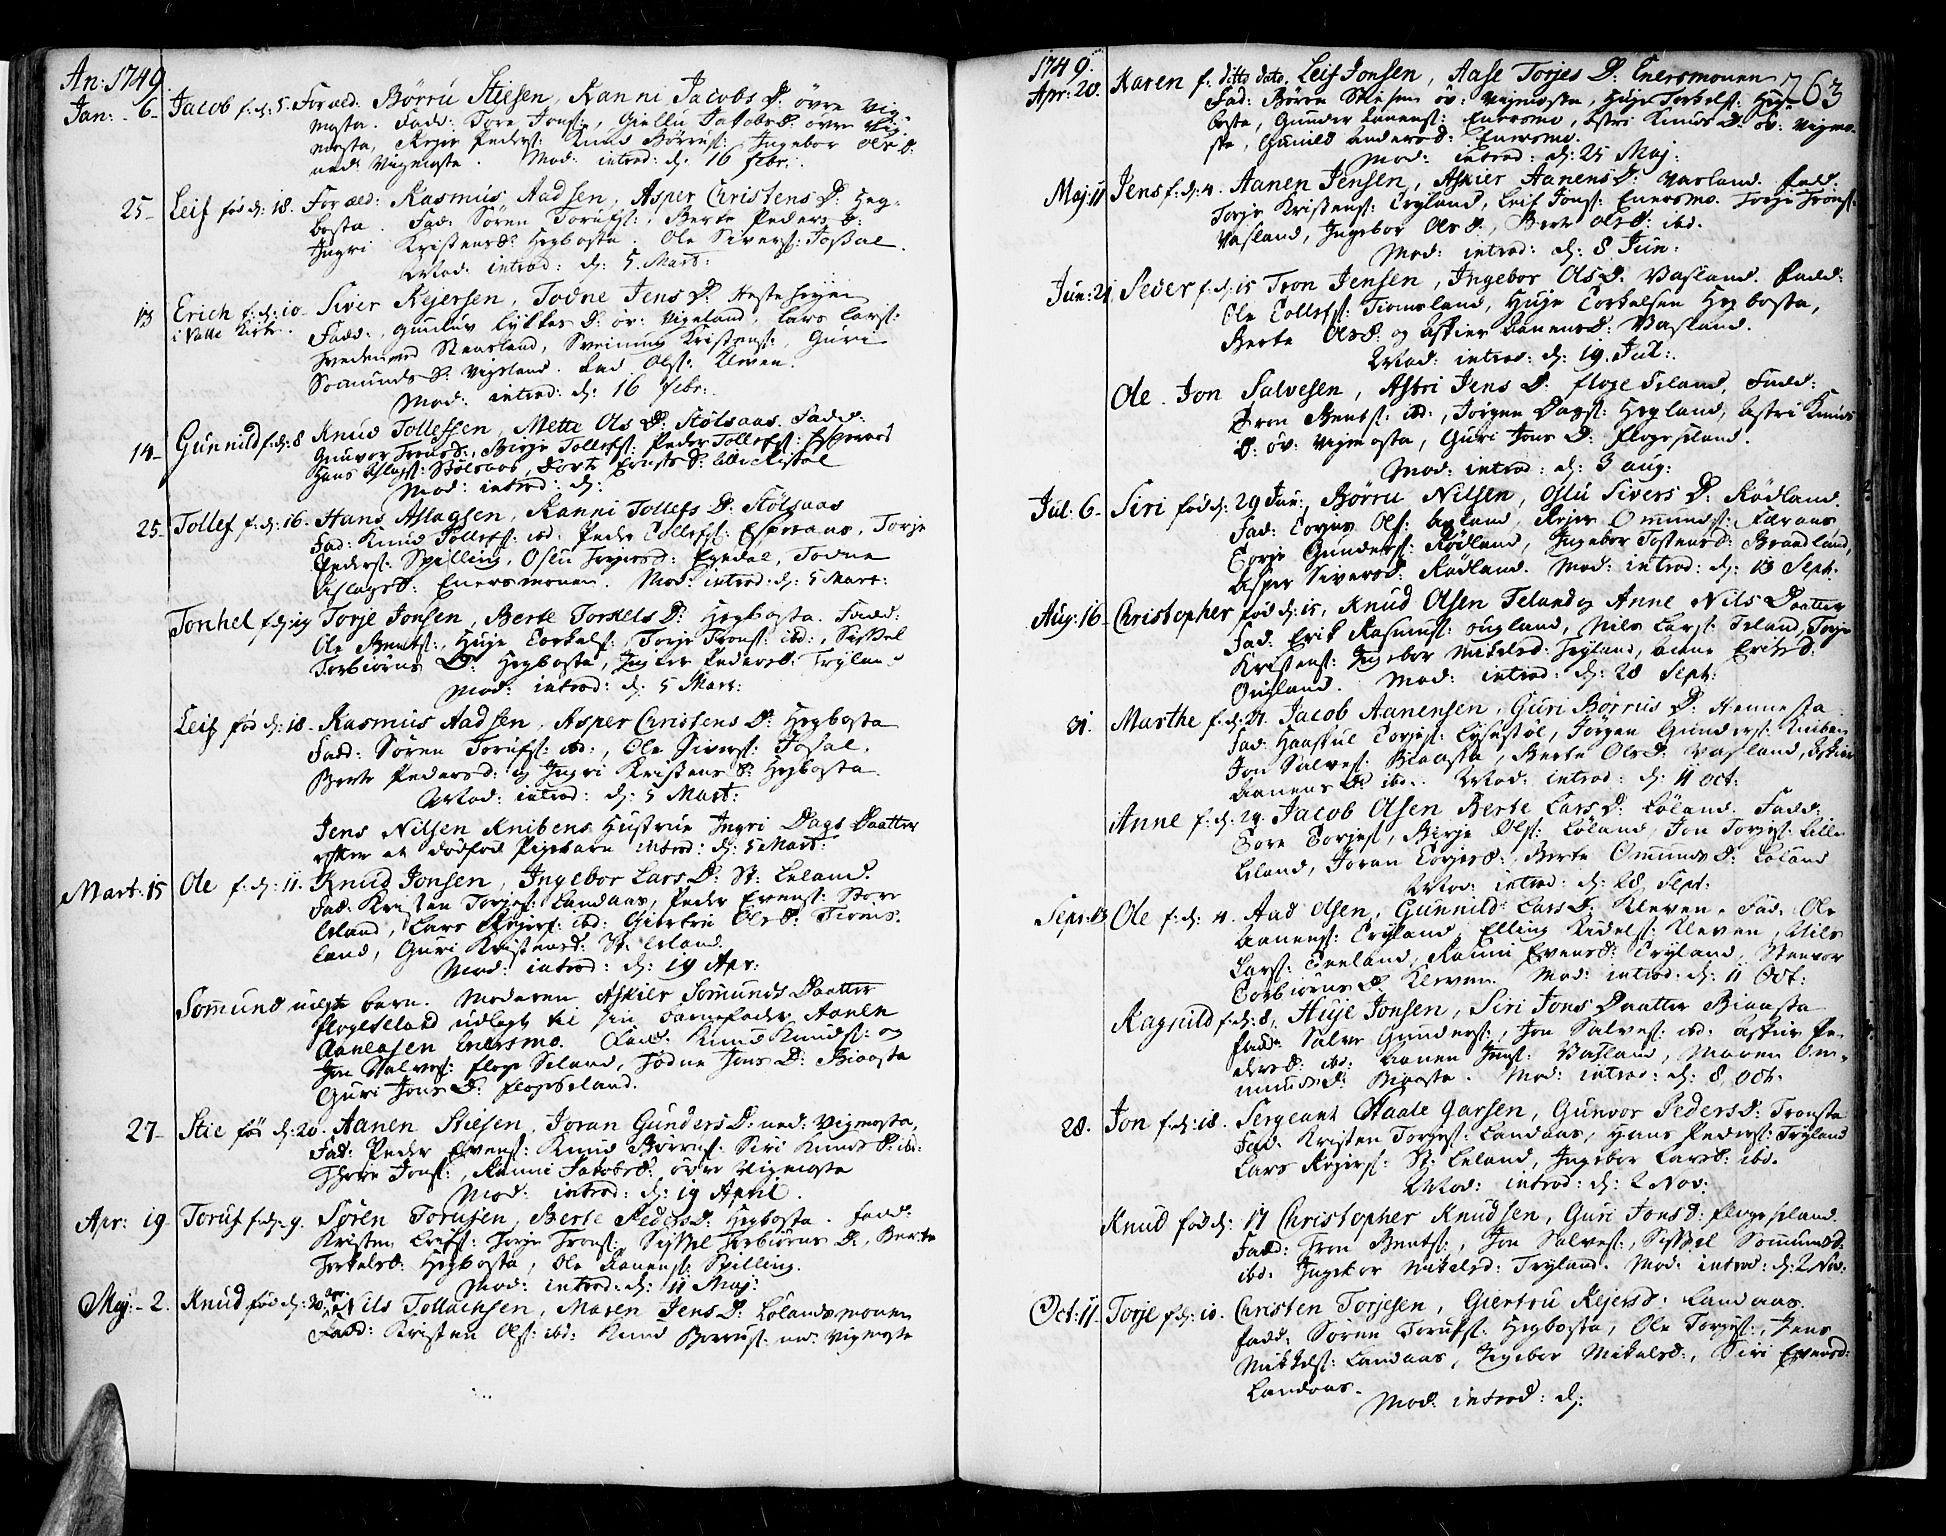 An: 1749.
Jan: 6. Jacob f. d: 5. Foræld: Børru Stiesen, Ranni Jacobs D: øvre Vig-
mosta. Fadd: Tore Jons:, Giellu Jakobsd: øvre Vig-
mosta, Rejer Peders: Knud Børrus: Ingebor Olsd:
ned: Vigmosta. Mod: introd: d: 16 febr:
25. Leif fød d: 18. Foræld: Rasmus Aadsen, Asper Christens D: Heg-
bosta. Fad: Søren Torufs:, Berte Peders D:
Ingri Kristensd: Hegbosta. Ole Sivers: Fossal.
Mod: introd: d: 5. Mart:
13 Erich f: d: 10. Siver Rejersen, Todne Jens D:
i Valle Kirke. Fadd: Gunluv Lykkes D: øv: Vigeland, Lars Lars:
Stensland, Sveinung Kristens:, Guri
Somunds D: Vigeland. Aad Ols: Kleven.
Mod: introd: d: 16 febr:
14. Gunnild f: d: 8 Knud Tollefsen, Mette Ols D: Stølsaas. Fadd:
Gunvor Tronsd:, Birje Tollefs: Peder Tollefs:
Hans Aslags: Stølsaas, Dorte
Mod: introd: d:
25. Tollef f: d: 16. Hans Aslagsen, Ranni Tollefs D: Stølsaas
Fad: Knud Tollefs: ibd: Peder Tollefs: Torje
Peders: Spilling, Oslu Todne
Aslagsd: Enersmonen. Mod: introd: d: 5 Mart:
Torkel f. d: 19 Torje Jonsen, Berte Torkels D: Hegbosta. Fadd:
Ole Bents:, Huje Torkels: Torje Trons: ibd:, Sissel
Torbiørns D: Hegbosta, Pedersd: Tryland
Mod: introd: d: 5 Mart:
Leif fød d: 18. Rasmus Aadsen, Asper Christens D: Hegbosta
Fadd: Søren Torufs: ibd:, Ole Sivers: Fossal.
Berte Pedersd: og Ingri Kristens D: Hegbosta.
Mod: introd: d: 5 Mart:
Jens Nilsen Knibens Hustrue Ingri Dags Daatter
efter et dødfød Pigebarn introd: d: 5 Mart:
Mart: 15 Ole f. d: 11. Knud Jonsen, Ingebor Lars D: St: Leland.
Fad: Kristen Torjes: Landaas, Peder Evens: Store
Leland, Lars Rejers: ibd: Giertru Olsd: Tioms-
land, Guri Kristensd: St: Leland.
Mod: introd: d: 19 Apr:
Somund uægte barn. Moderen Askier Somunds Daatter
Flogeseland udlagt til sin barnefader Aanen
Aanensen Enersmo. Fad: Knud Knuds: og
Jon Salves: Floge Seland, Todne Jons D: Biaasta
Guri Jons D: Flogeseland.
27. Stie fød d: 20. Aanen Stiesen, Joran Gunders D: ned: Vigmosta,
Fad: Peder Evens: Knud Børrus: Siri Knuds D: ibd:
Thore Jons:, Ranni Jakobsd: øvre Vigmosta
Mod: introd: d: 19 April.
Apr: 19. Toruf f. d: 9. Søren Torufsen, Berte Pedersd: Hegbosta. Fadd:
Kristen Leifs: Torje Trons: Sissel Torbiørns D:, Berte
Torkelsd: Hegbosta, Ole Aanens: Spilling.
Mod: introd: d: 11 Maj:
Maj: 2. Knud fød d: 30 apr: Nils Tollachsen, Maren Jens D: Lølandsmonen
Fadd: Kristen Ols: ibd: Knud Børrus: ned: Vigmosta
1749. 263
Apr: 20. Karen f. ditto dato, Leif Jonsen, Aase Torjes D: Enersmonen
Fad: Børre Stiesen øv: Vigmosta, Huje Torkels: Heg-
bosta, Gunder Aanens: Enersmo, Astri Knuds D: øv: Vigmo-
sta, Gunild Andersd: Enersmo.
Mod: introd: d: 25 Maj:
Maj: 11 Jens f: d: 4. Aanen Jensen, Askier Aanens D: Vasland. Fadd:
Torje Kristens: Tryland, Leif Jons: Enersmo. Torje Trons:
Vasland, Ingebor Olsd:, Berte Olsd: ibd.
Mod: introd: d: 8 Jun:
Jun: 21 Peder f: d: 15 Tron Jensen, Ingebor Ols D: Vasland. Fadd:
Ole Tollefs: Tiomsland, Huje Torkelsen Hegbosta,
Berte Olsd: og Askier Aanensd: Vasland.
Mod: introd: d: 19. Jul:
Ole. Jon Salvesen, Astri Jens D: Floge Seland, Fadd:
Tron Bents: ibd:, Jørgen Dags: Hegland, Astri Knuds
D: øv: Vigmosta, Guri Jons D: Flogeseland.
Mod: introd: d: 3 aug:
Jul: 6. Siri fød d: 29 Jun: Børru Nilsen, Oslu Sivers D: Rødland.
Fad: Ols: Rejer Omunds: Færaas
Torje Gunders: Rødland, Ingebor Tostensd: Brandland,
Asper Siversd: Rødland. Mod: introd: d: 13 Sept:
Aug: 16. Christopher fød d: 15. Knud Olsen Telandog Anne Nils Daatter
Fad: Erik Rasmus: Ougland, Nils Lars: Teland, Torje
Kristens: Ingebor Mikelsd: Tryland, Anne Eriksd:
Ougland. Mod: introd: d: 28 Sept:
31. Marthe f. d: 21. Jacob Aanensen, Guri Børrus D: Hennesta
Fad: Haastul Torjes: Lysestøl, Jørgen Gunders: Kniben
Jon Salves: Biaasta, Berte Olsd: Vasland, Askier
Aanens D: ibd:. Mod: introd: d: 11 Oct:
Anne f. d: 29. Jacob Olsen Berte Lars D: Løland. Fadd:
Tore Torjes:, Birje Ols: Løland, Jon Torjes: Lille
Leland, Joran Torjesd:, Berte Omunds D: Løland
Mod: introd: d: 28 Sept:
Sept: 13 Ole f: d: 4. Aad Olsen, Gunnild Lars D: Kleven. Fad: Ole
Aanens: Tryland, Elling Kidels: Kleven, Nils
Lars: Teeland, Ranni Evensd: Tryland, Stenvor
Torbiørns D: Kleven. Mod: introd: d: 11 Oct:
Ragnild f: d: 8. Huje Jonsen, Siri Jons Daatter Biaasta
Fadd: Salve Gunders:, Jon Salves: ibd: Askier Pe-
dersd: ibd: Aanen Jens: Vasland, Maren Om-
mundsd: Biaasta. Mod: introd: d: 8. Oct.
28. Jon f: d: 18. Sergeant Staale Garsen, Gunvor Pedersd: Tronsta
Fad: Kristen Torjes: Landaas, Hans Peders: Tryland
Lars Rejers: St: Leland, Ingebor Larsd: ibd.
Mod: introd: d: 2 Nov:
Knud fød d: 17 Christopher Knudsen, Guri Jonsd: Flogeseland.
Fadd: Tron Bents:, Jon Salves:, Sissel Somundsd:
ibd: Ingebor Mikelsd: Tryland. Mod: introd: d: 2 Nov:
Oct: 11. Torje f: d: 10. Christen Torjesen, Giertru Rejersd: Landaas.
Fadd: Søren Torufs: Hegbosta, Ole Torjes:, Jens
Mikkels: Landaas, Ingebor Mikelsd:, Siri Evensd:
Landaas. Mod. introd: d: